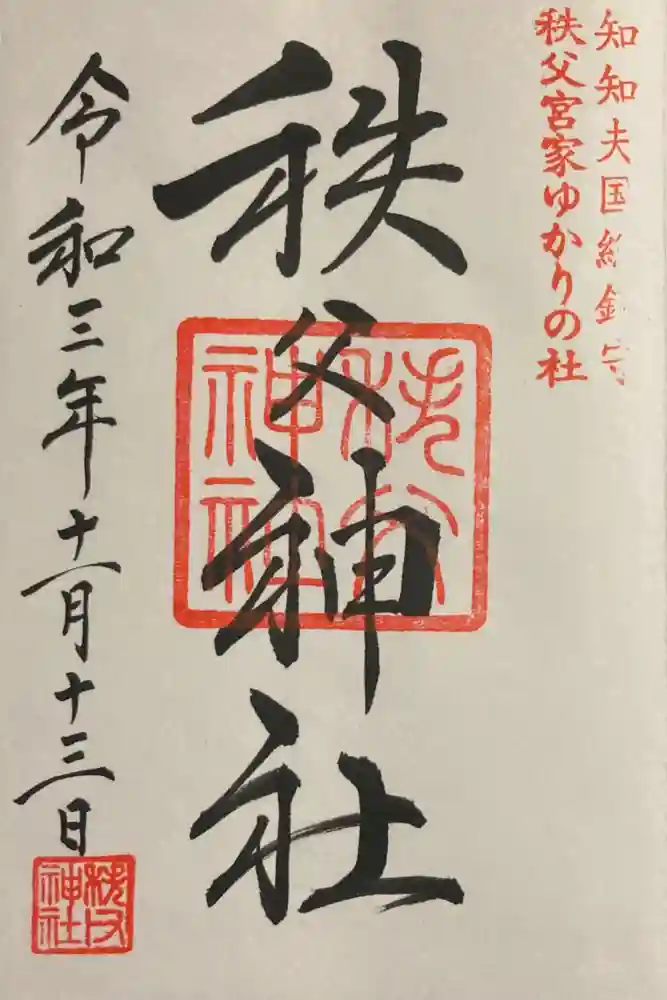 知知夫国総鎮守
秩父宮家ゆかりの社
秩父神社
秩父神社
令和三年十一月十三日
秩父神社